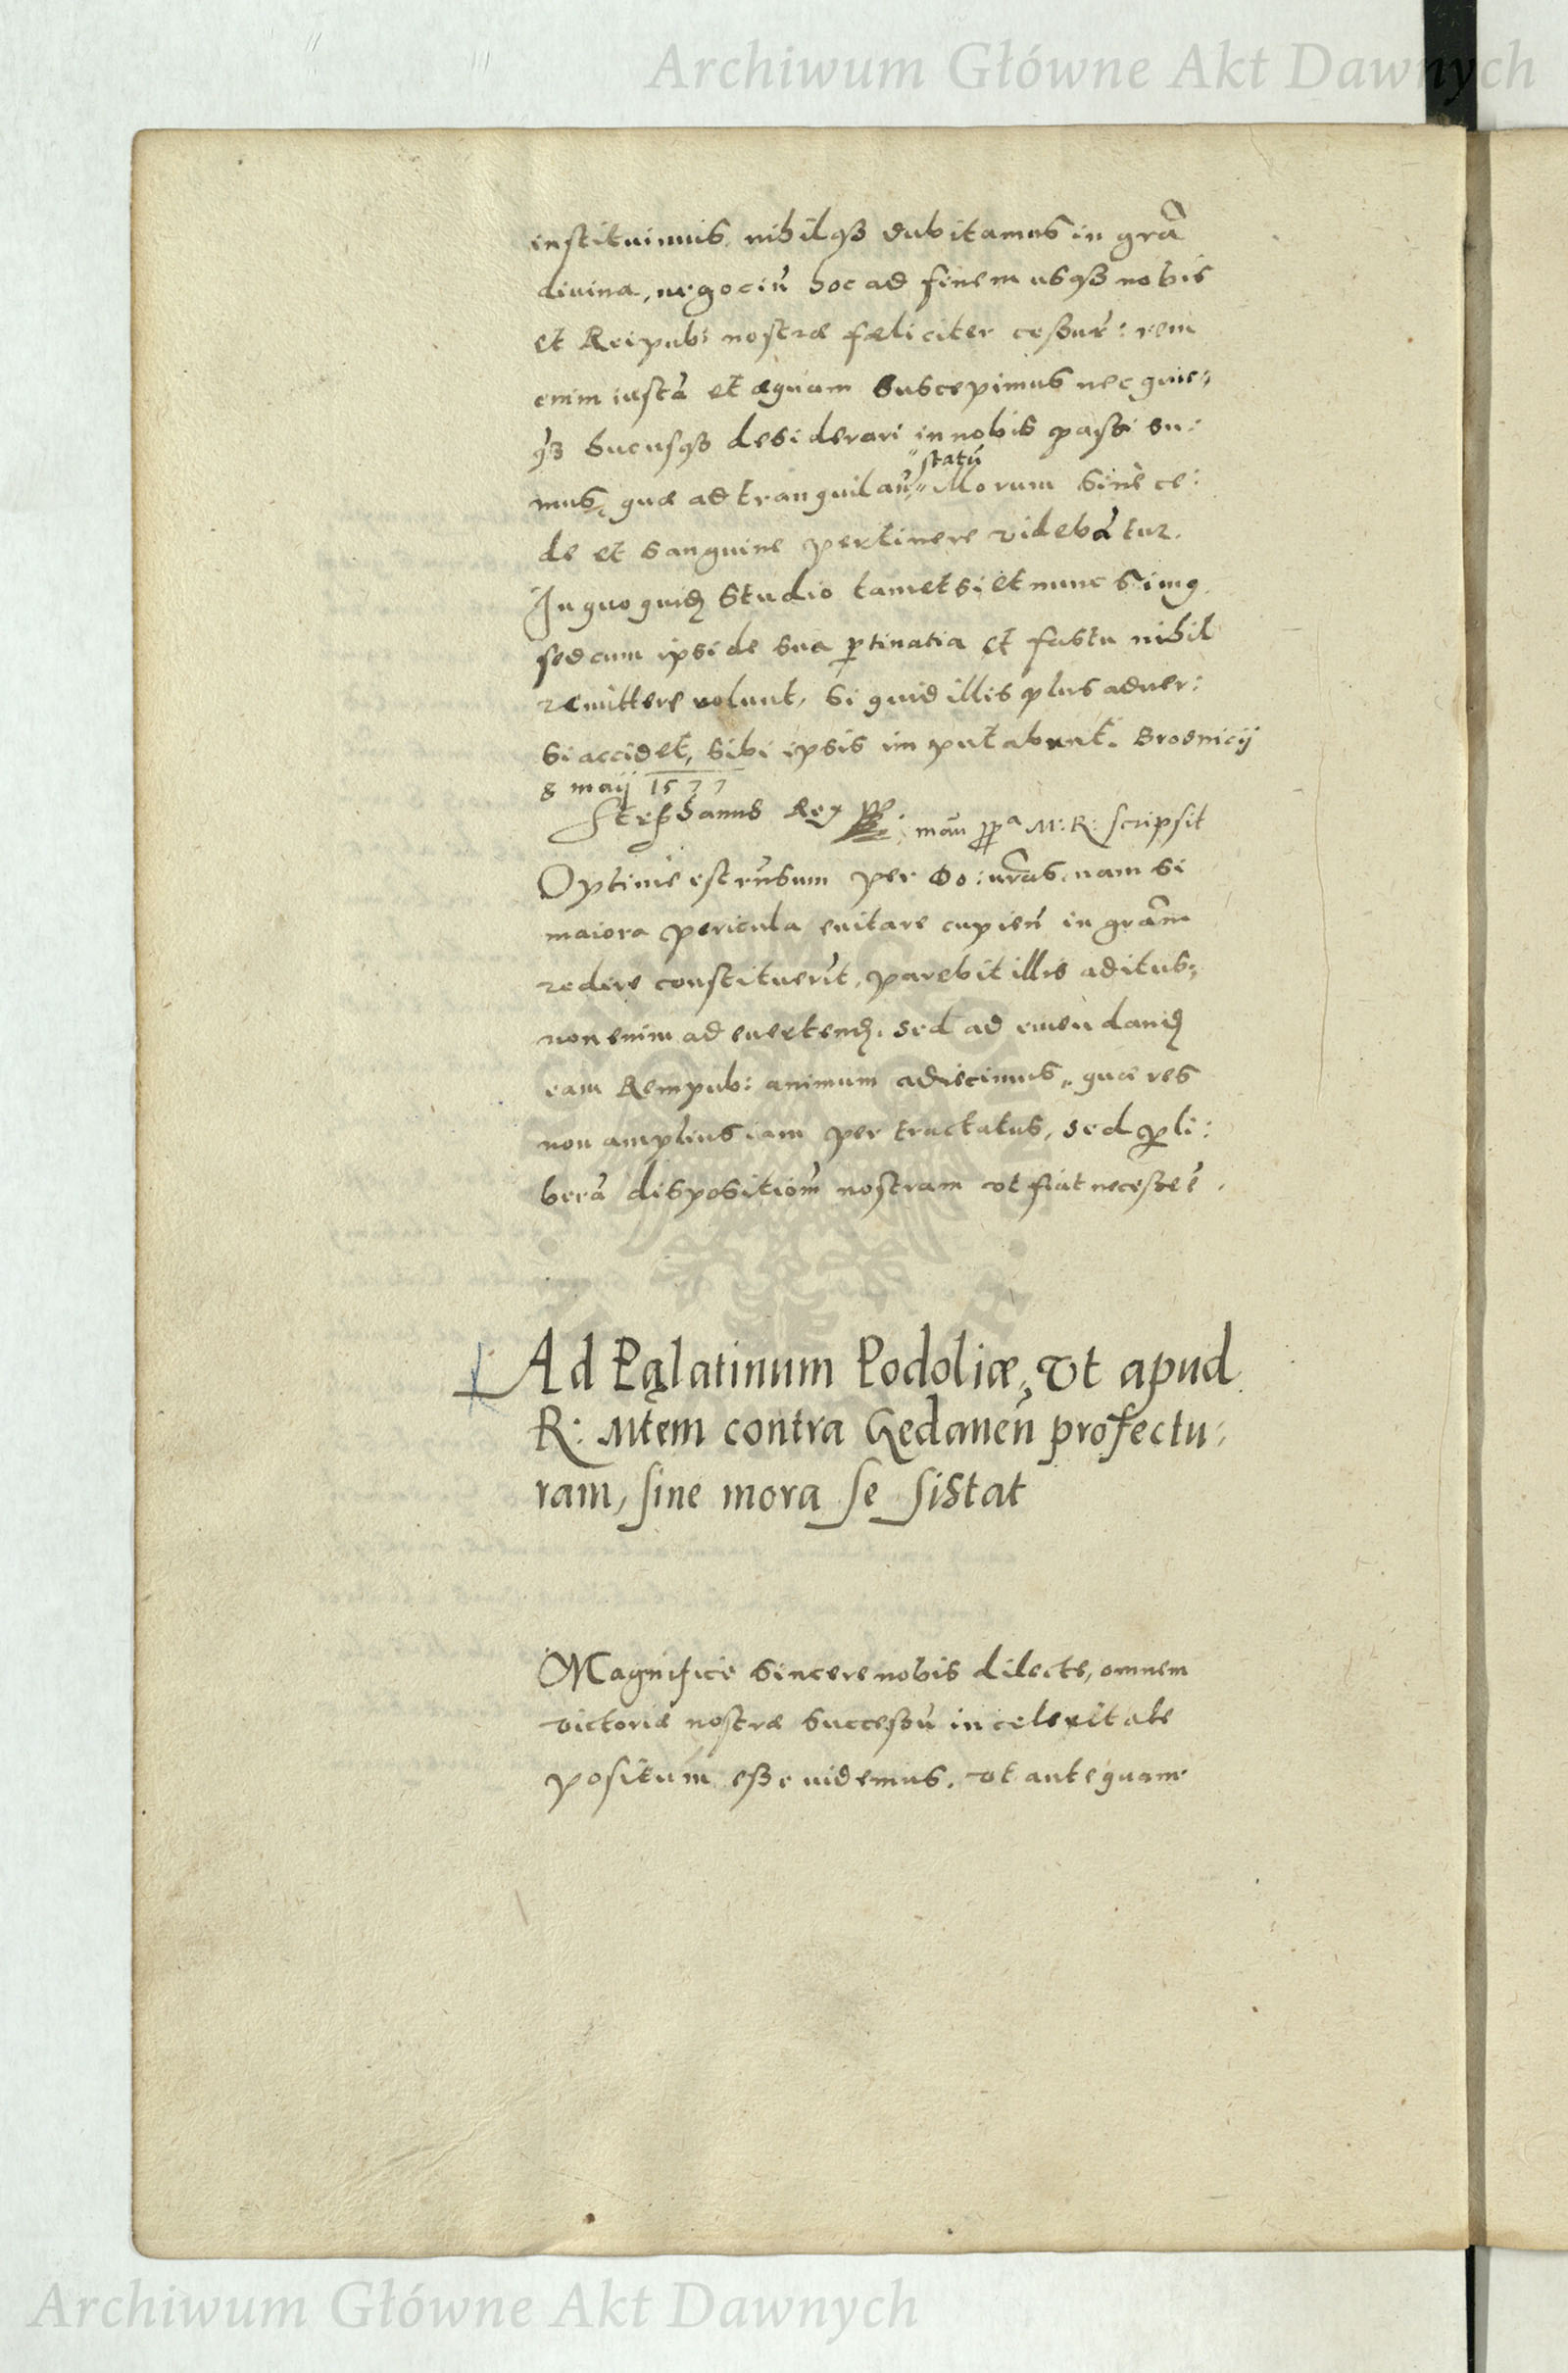 Archiwum Główne Akt Dawnych
instituimus, nihilqȝ dubitamus in grã
diuina, negociũ hoc ad finem usqȝ nobis
et Reipub: nostræ fæliciter cessur̃: rem
enim iustã et æquam suscepimus nec quic„
qȝ hucusqȝ desiderari in nobis passi su:
statũ
mus, quæ ad tranquilũ illorum sine ce:
de et sanguine pertinere videbãtur.
In quo quidẽ studio tametsi et nunc simꝰ,
sed cum ipsi de sua ꝑtinatia et fastu nihil
remittere volunt, si quid illis plus aduer:
si accidet, sibi ipsis imputabunt. Brosnicij
8 maij 1577
Stephanus Rex manu ppa M: R: scripsit
Optime est rñsum per Do: uras, nam si
maiora pericula euitare cupien̄ in grãm
redire constituerĩt, parebit illis aditus,
non enim ad euertendã, sed ad emendandã
eam Rempub: animum adiecimus, quæ res
non amplius iam per tractatus, sed ꝑ li:
berã dispositiom̃ nostram vt fiat necesse ẽ.
Ad Palatinum Podoliæ, vt apud
R: Mtem contra Gedanen̄ profectu:
ram, sine mora se sistat
Magnifice sincere nobis dilecte, omnem
victoriæ nostræ successũ in celeritate
positum esse uidemus, vt antequam
Archiwum Główne Akt Dawnych